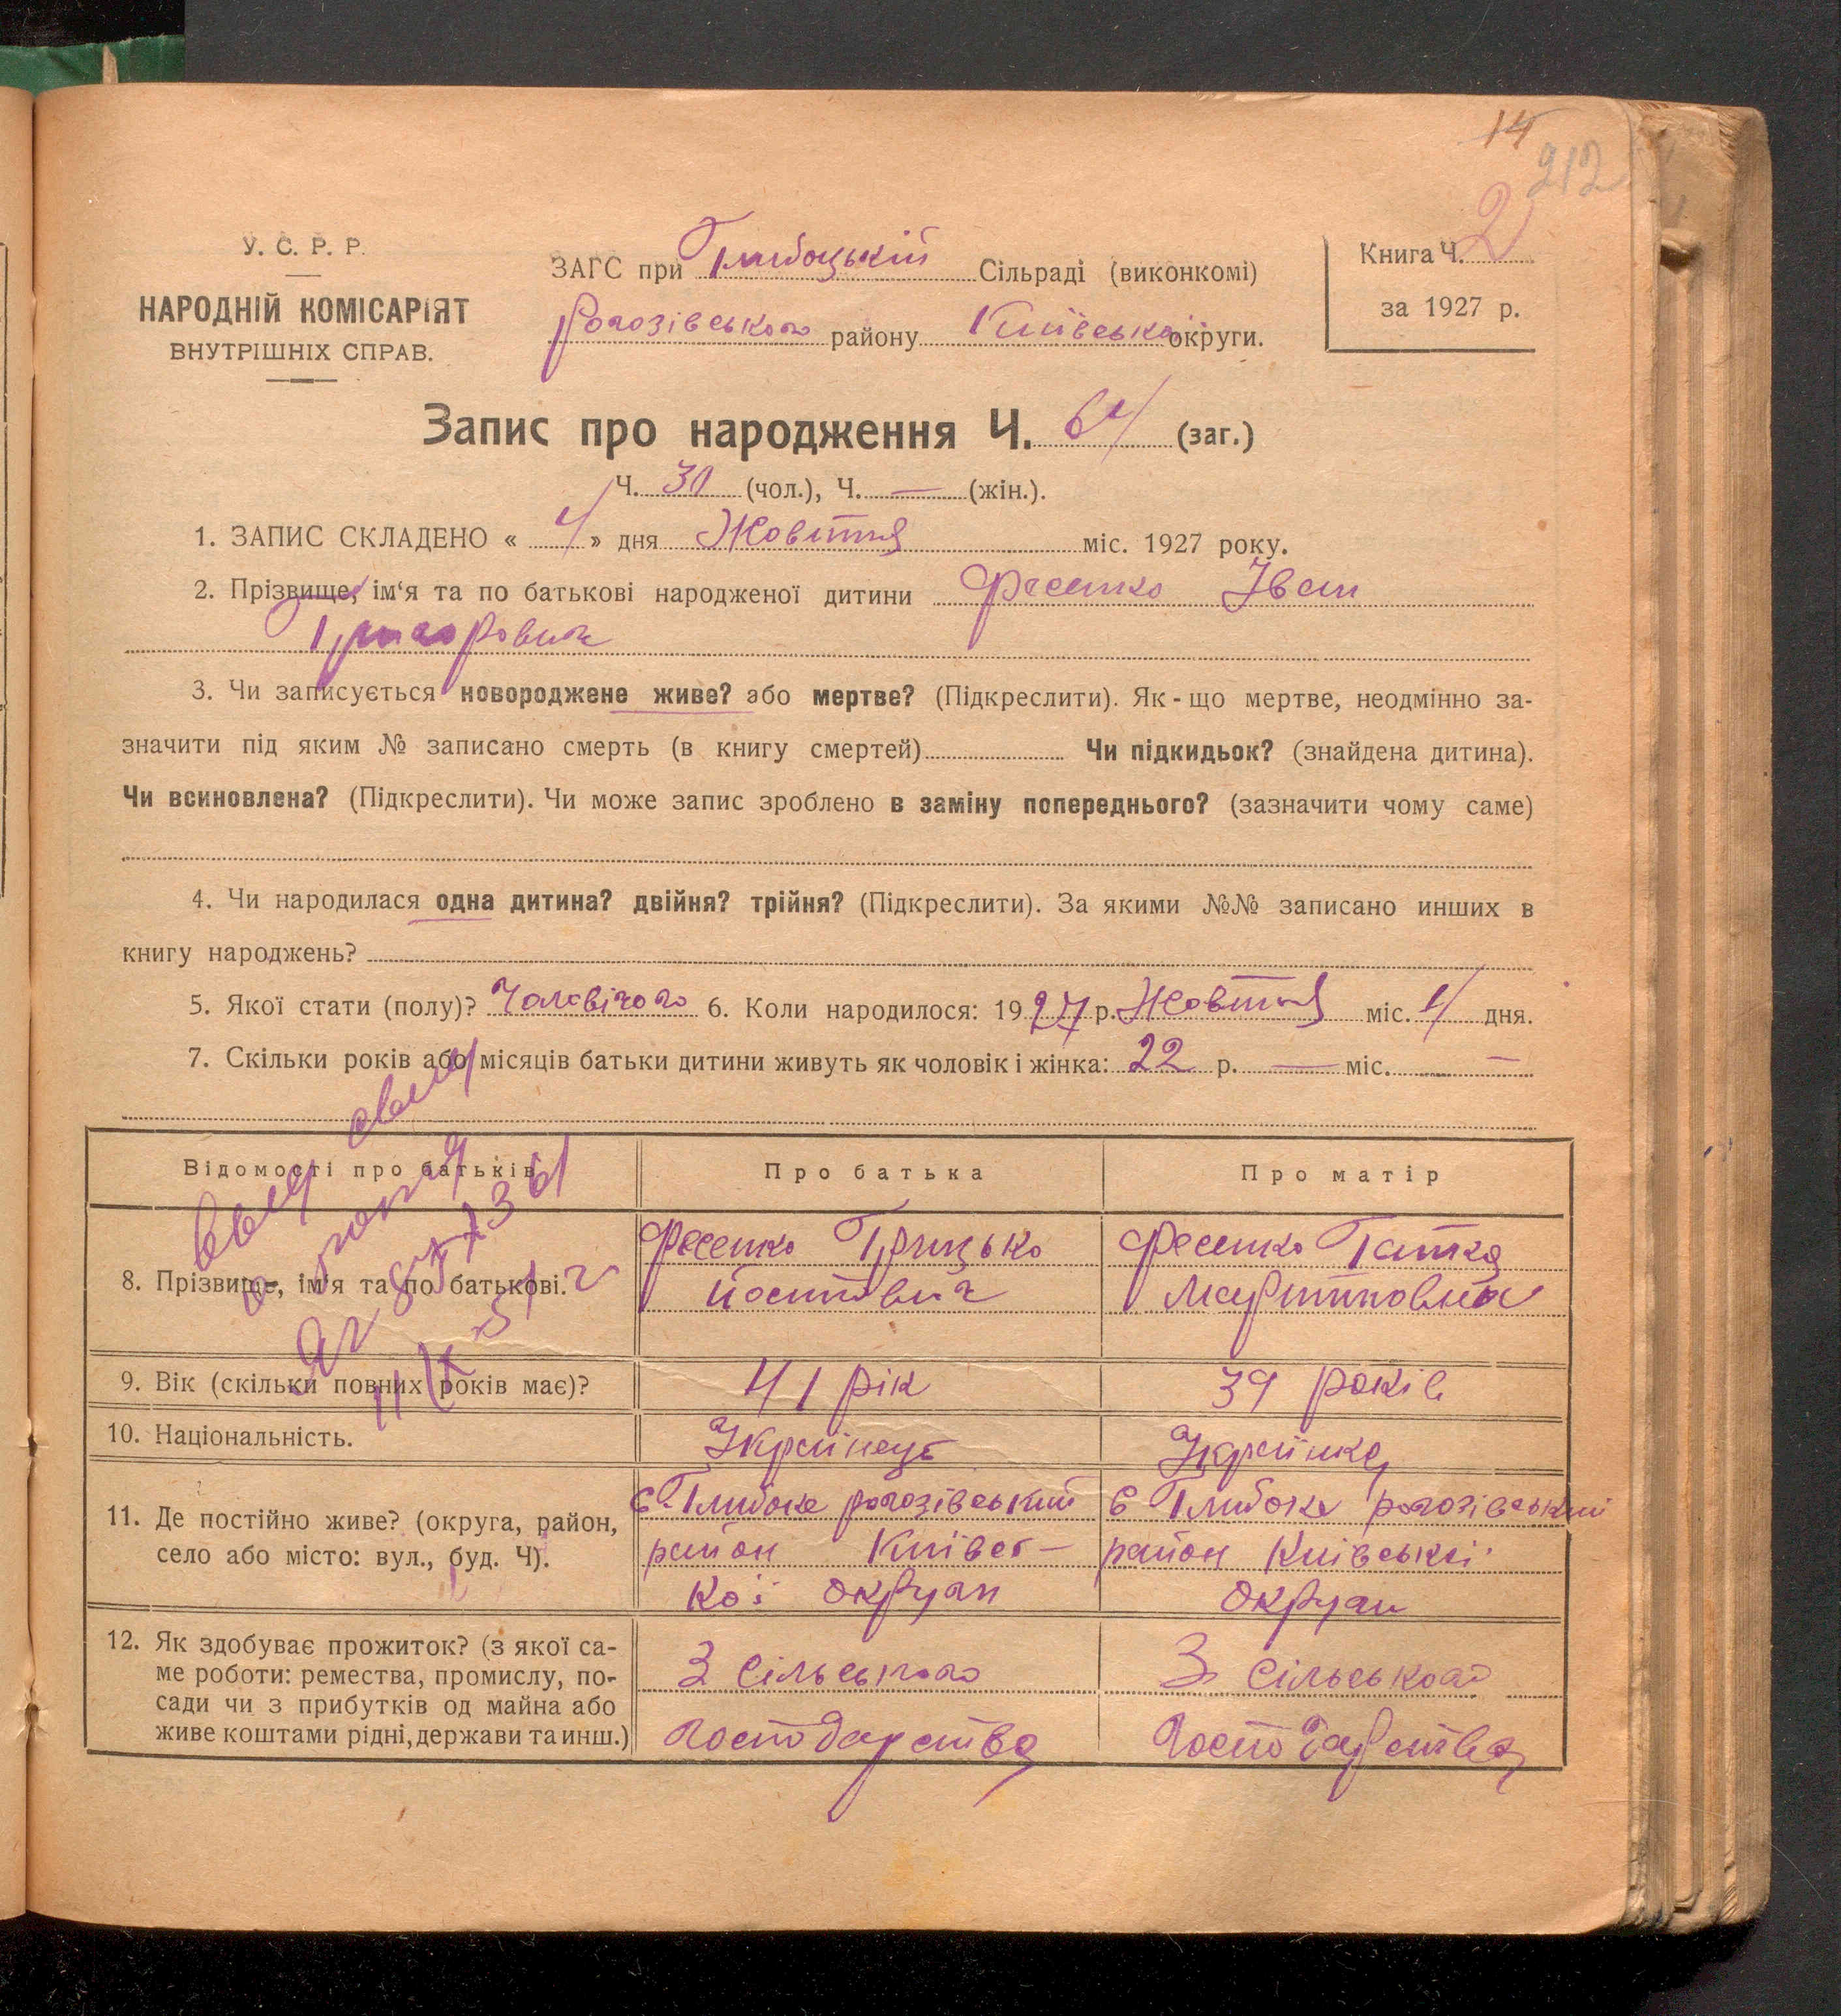 14
212
У. С. Р. Р.
НАРОДНІЙ КОМІСАРІЯТ
ВНУТРІШНІХ СПРАВ.
ЗАГС при Глибоцькій Сільраді (виконкомі)
Рогозівського району Київської округи.
Книга Ч. 2
за 1927 р.
Запис про народження Ч. 64 (заг.)
Ч. 30 (чол.), Ч. — (жін.).
1. ЗАПИС СКЛАДЕНО « 4 » дня Жовтня міс. 1927 року.
2. Прізвище, ім‘я та по батькові народженої дитини Фесенко Іван
Григорович
3. Чи записується новороджене живе? або мертве? (Підкреслити). Як-що мертве, неодмінно за-
значити під яким № записано смерть (в книгу смертей) Чи підкидьок? (знайдена дитина).
Чи всиновлена? (Підкреслити). Чи може запис зроблено в заміну попереднього? (зазначити чому саме)
4. Чи народилася одна дитина? двійня? трійня? (Підкреслити). За якими №№ записано инших в
книгу народжень?
5. Якої стати (полу)? Чоловічого 6. Коли народилося: 1927 р. Жовтня міс. 4 дня.
7. Скільки років або місяців батьки дитини живуть як чоловік і жінка: 22 р. — міс. —
Відомості про батьків
Про батька
Про матір
8. Прізвище, ім'я та по батькові.
Фесенко Грицько
Фесенко Ганка
9. Вік (скільки повних років має)?
41 рік
39 років
10. Національність.
Україінець
Українка
11. Де постійно живе? (округа, район,
село або місто: вул., буд. Ч).
с. Глибоке рогозівський
район Київсь-
кої округи
с Глибоке рогозівський
район Київської
округи
12. Як здобуває прожиток? (з якої са-
ме роботи: ремества, промислу, по-
сади чи з прибутків од майна або
живе коштами рідні, держави та инш.)
З сільського
господарства
З сільського
господарства